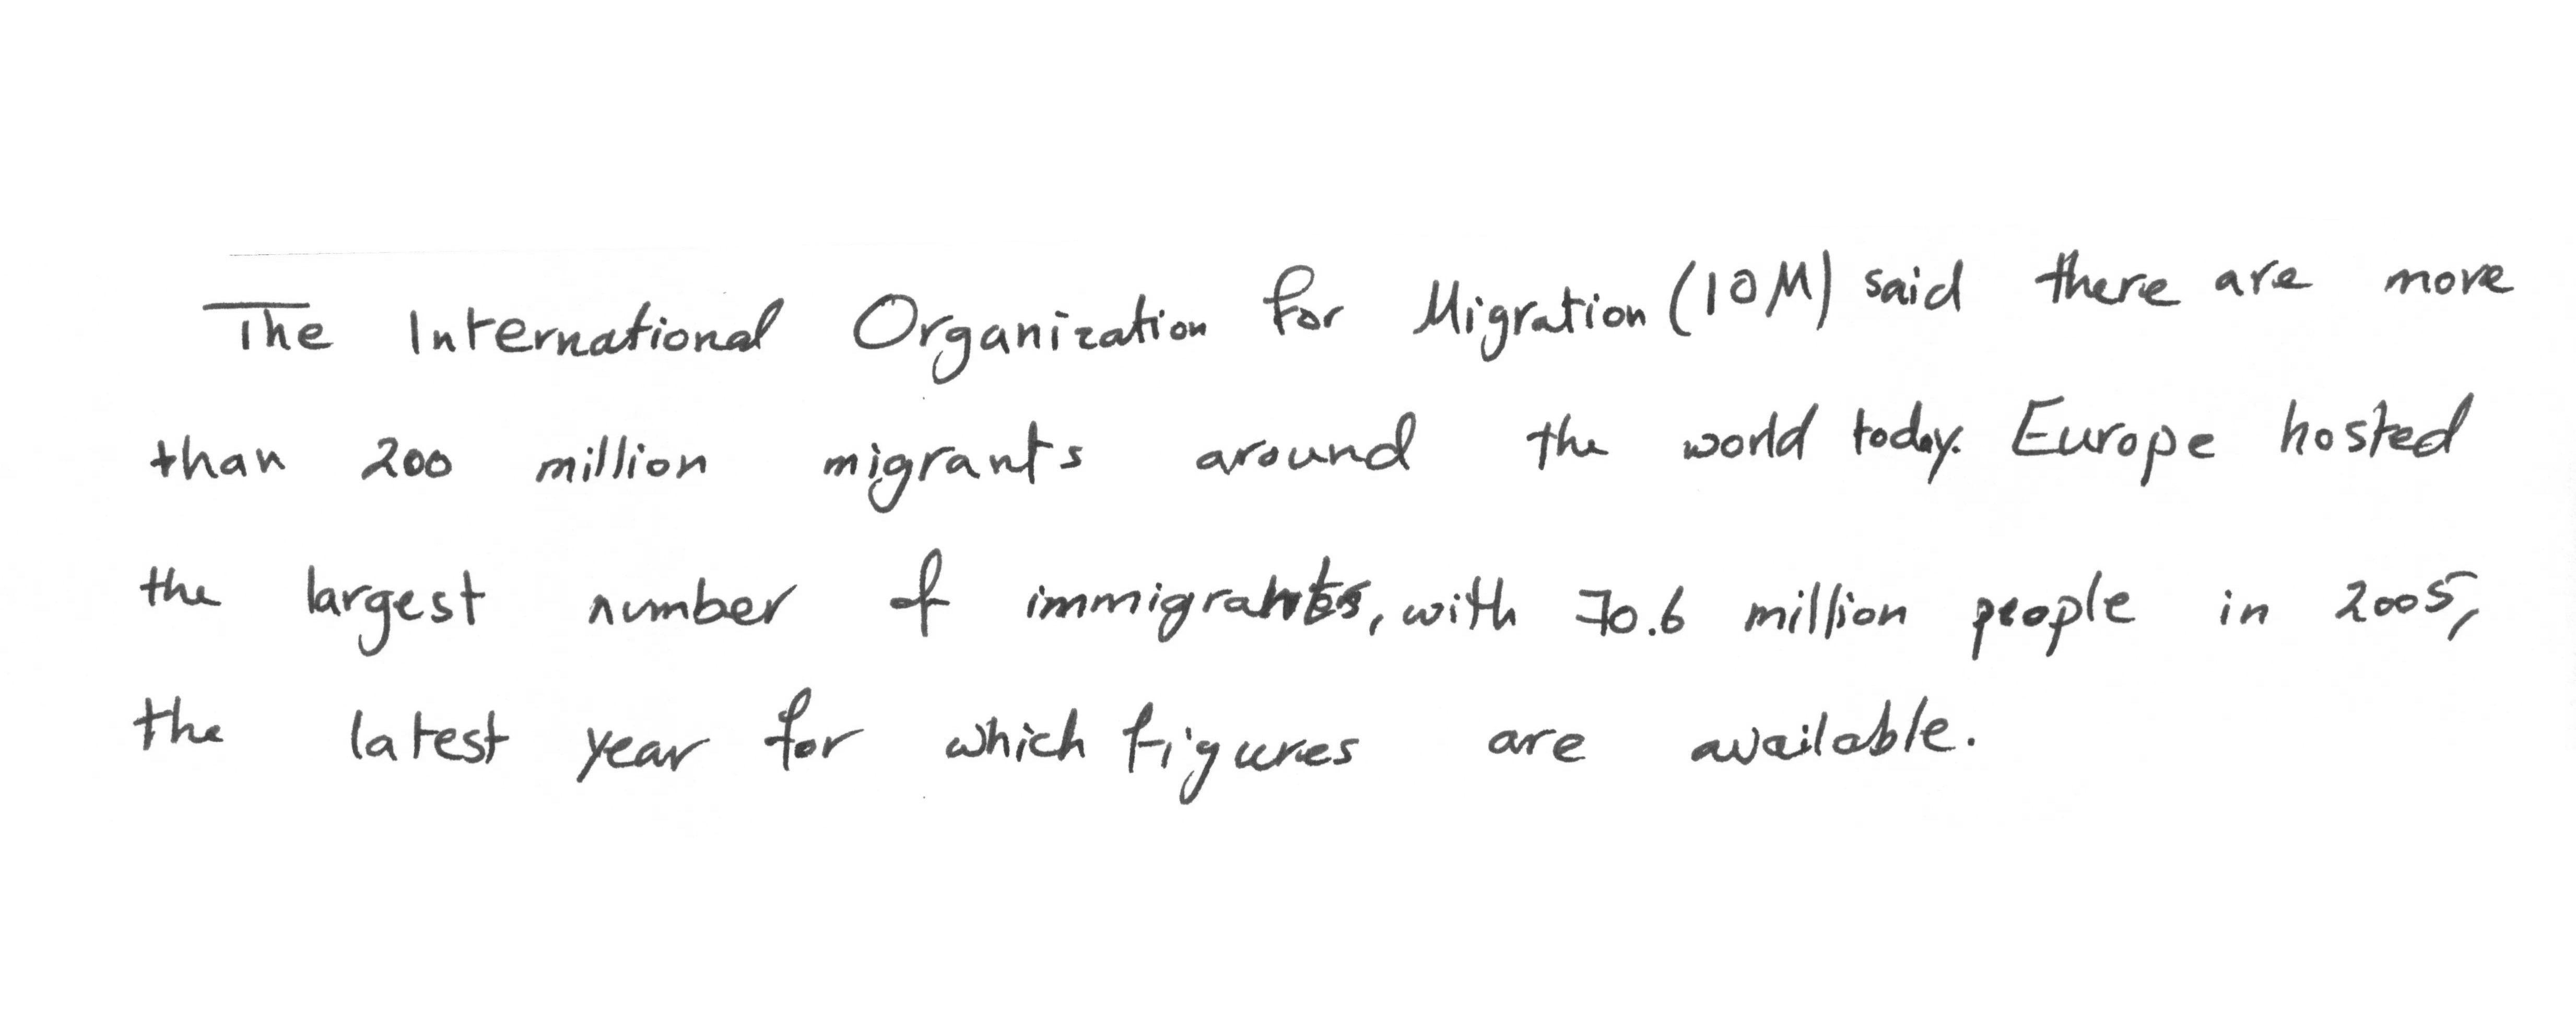 The International Organization for Migration (IOM) said there are more
than 200 million migrants around the world today. Europe hosted
the largest number of immigrants, with 70.6 million people in 2005,
the latest year for which figures are available.